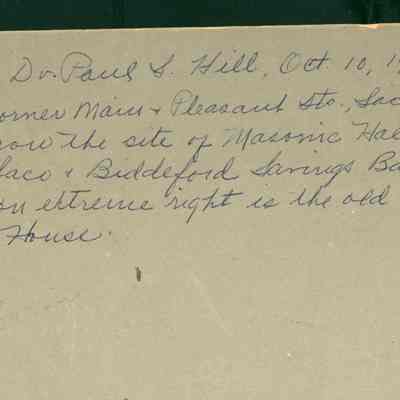 Dr. Paul S. Hill, Oct. 10, 19
orner Main & Pleasant Sts., Sac
now the site of Masonic Hal
Saco & Biddeford Savings Ba
on extreme right is the old
House.